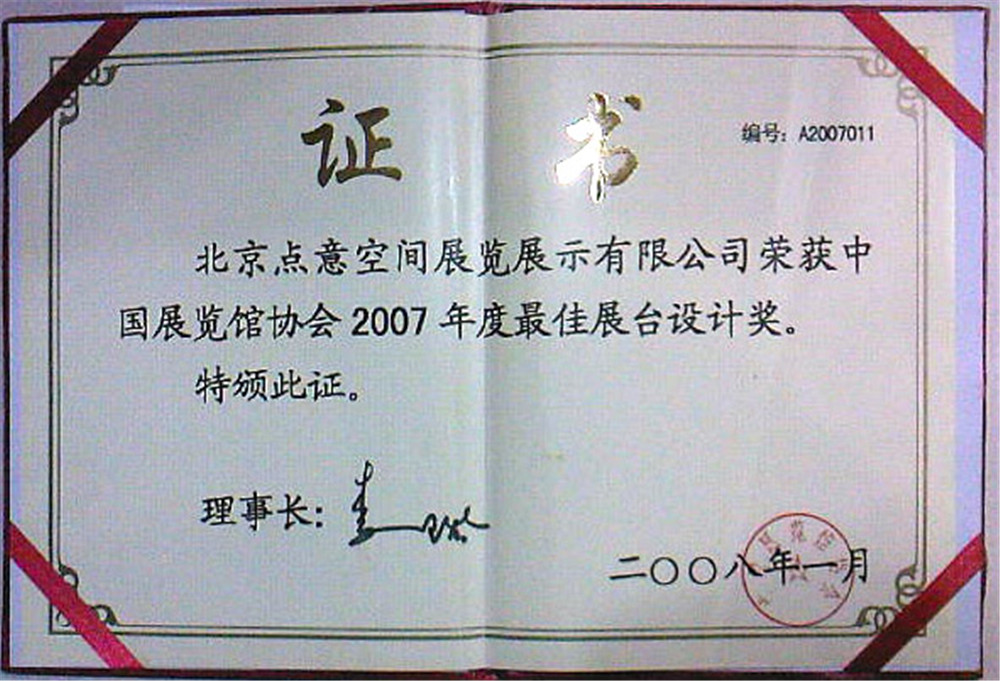 证书
编号：A2007011
北京点意空间展览展示有限公司荣获中
国展览馆协会2007年度最佳展台设计奖。
特颁此证。
理事长：
二〇〇八年一月